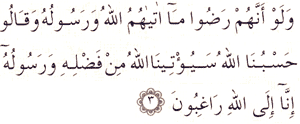 وَلَوْ أَنَّهُمْ رَضُوا مَآ اٰتٰىهُمُ اللهُ وَرَسُولُهُ وَقَالُو
حَسْبُنَا اللهُ سَيُؤْتِينَا اللهُ مِنْ فَضْلِهِ وَرَسُولُهُ
إِنَّا إِلَى اللهِ رَاغِبُونَ ٣